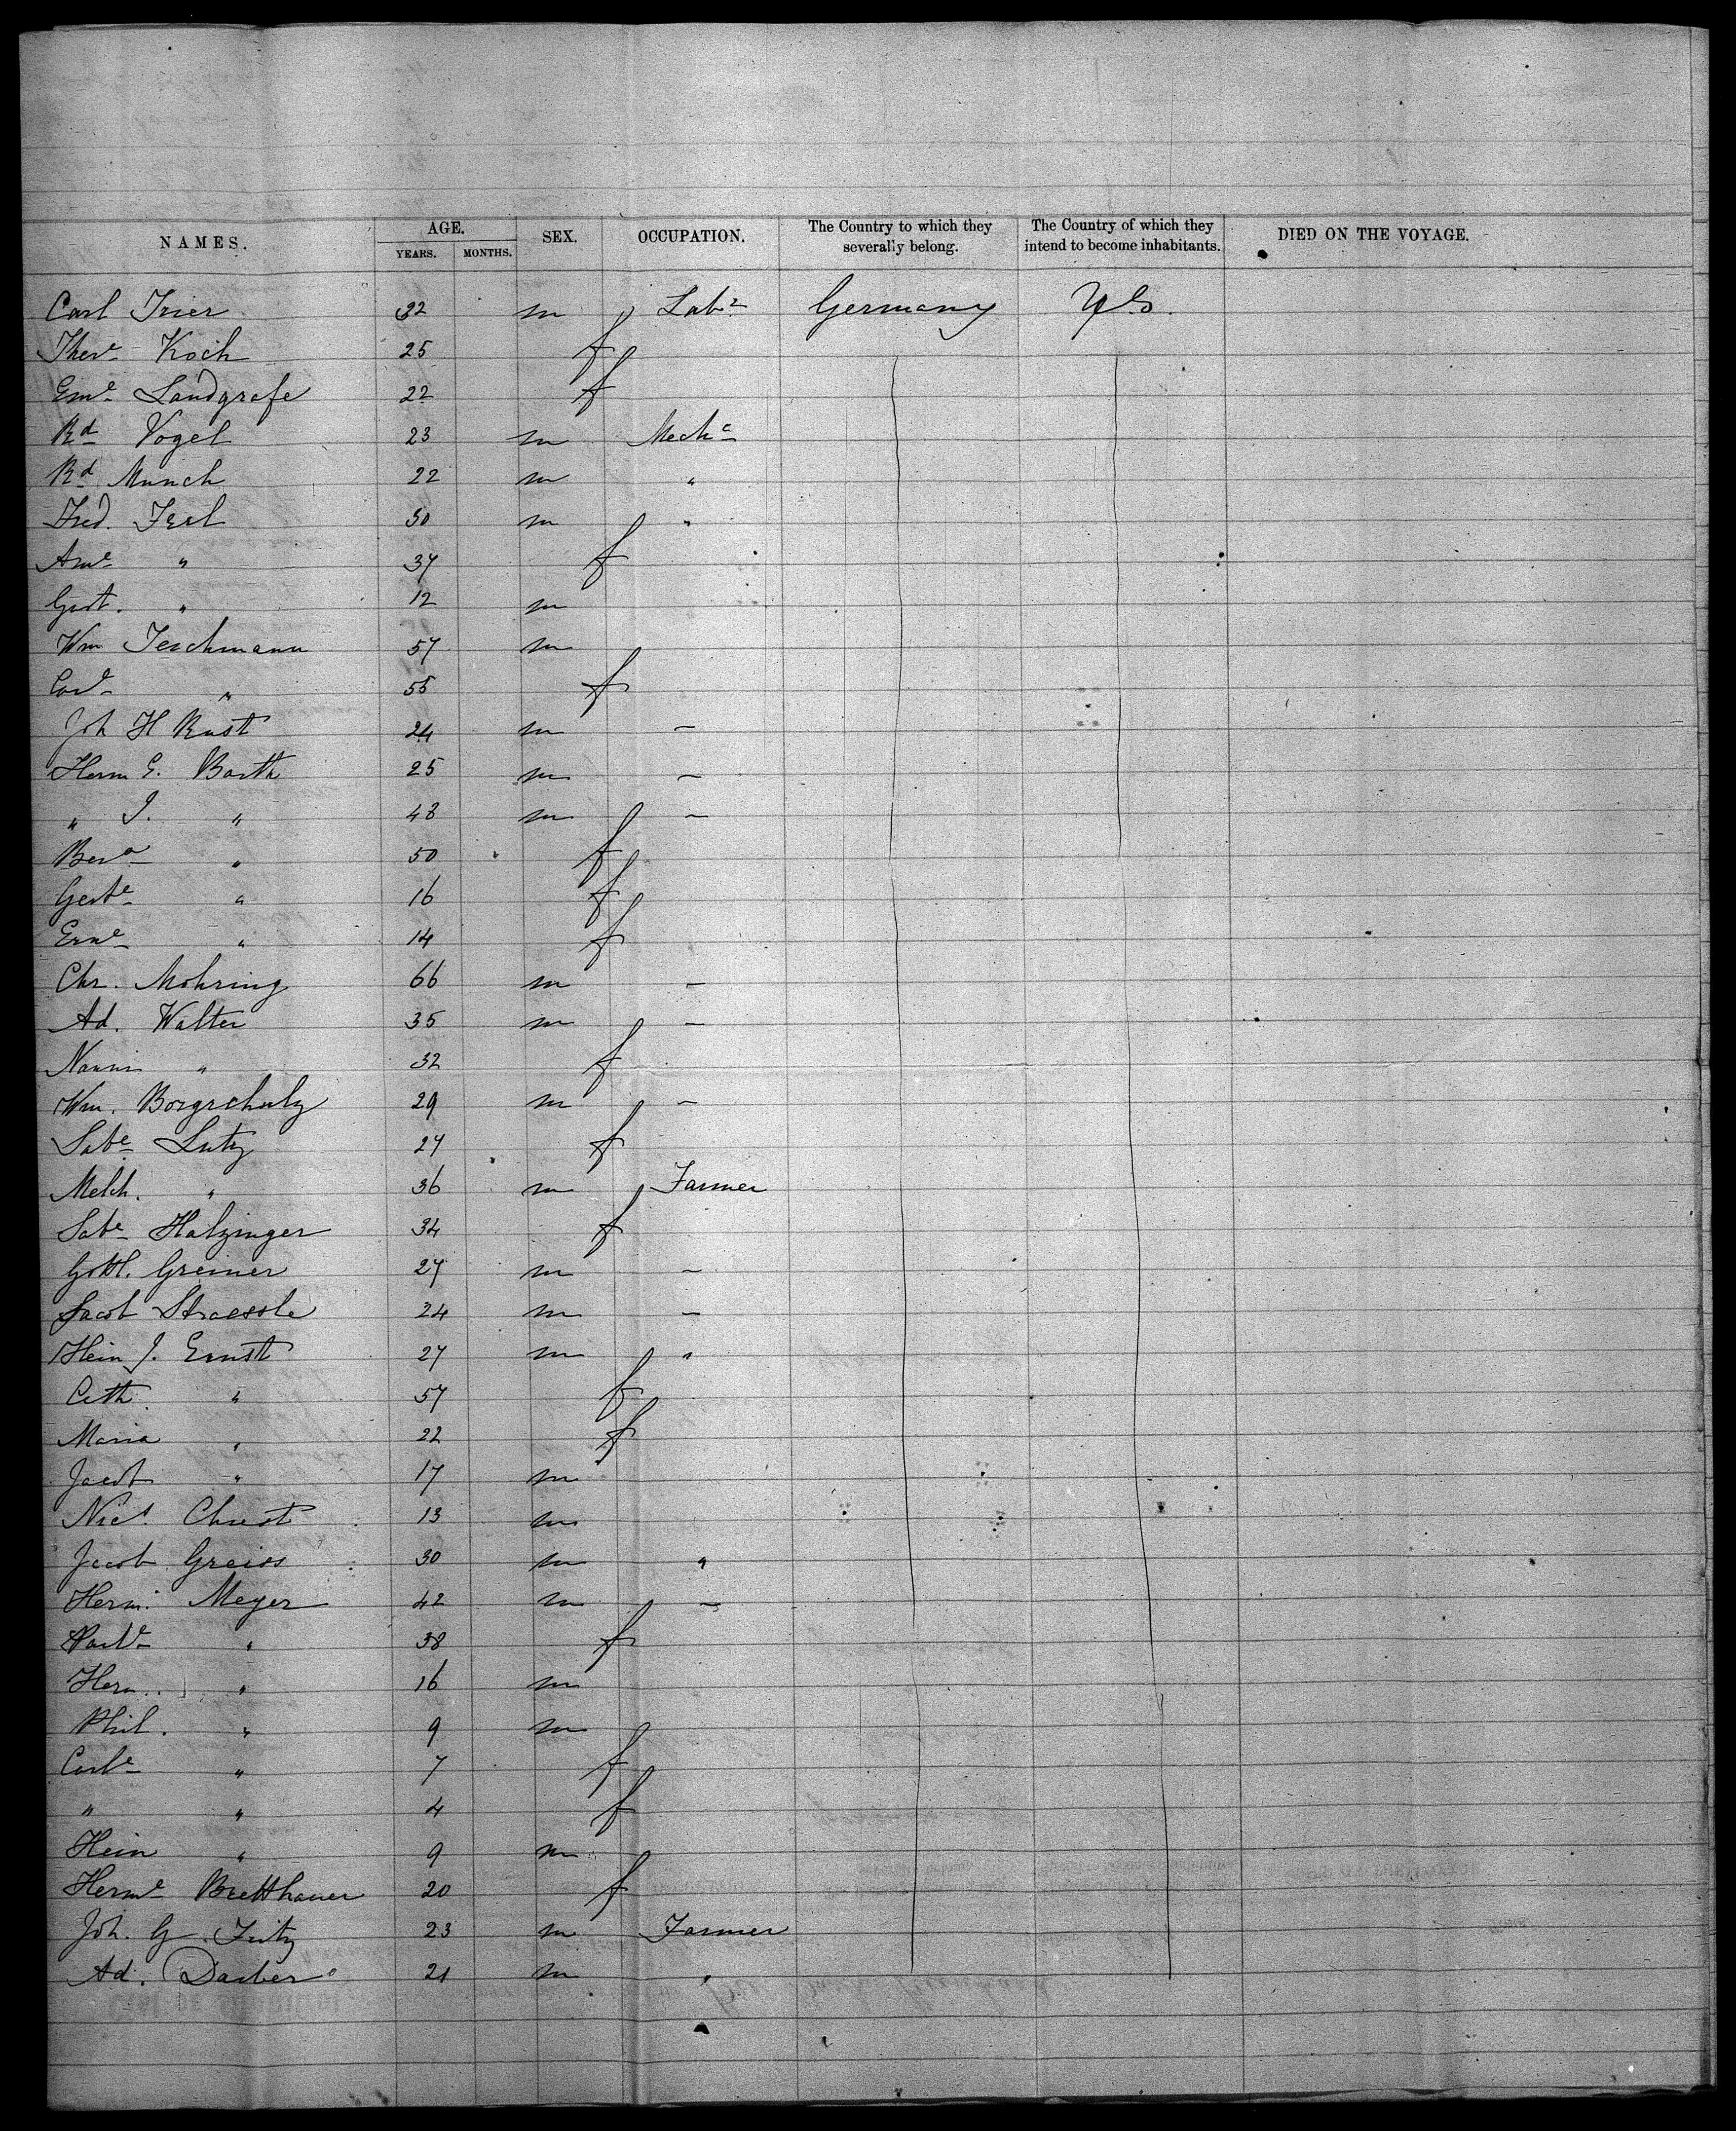 NAMES. AGE. SEX. OCCUPATION. The Country to which they severally belong. The Country of which they intend to become inhabitants. DIED ON THE VOYAGE.
YEARS. MONTHS.
Carl Trier 32 m Labr Germany
Koch 25 f
Eme Landgrafe 22 f
Rd Vogel 23 m Mechc
Rd Munch 22 m "
Fred. 30 m "
" 37 f
" 12 m
Wm Teichmann 57 m
" 55 f
Joh H Rust 24 m –
Herm E. Barth 25 m –
" J. " 48 m –
" 50 f
" 16 f
Erne " 14 f
Chr. Mohring 66 m –
Ad. Walter 35 m –
" 32 f
Wm. 29 m –
Sabe Lutz 27 f
Melch. " 36 m Farmer
Sabe Halzinger 34 f
Gottl. Greiner 27 m –
Jacob Straessle 24 m –
Hein J. Ernst 27 m "
" 57 f
Maria " 22 f
Jacob " 17 m
Christ 13 m
Jacob Greiss 30 m "
Herm. Meyer 42 m –
" 38 f
Herm. " 16 m
Phil. " 9 m
Carle " 7 f
" " 4 f
Hein " 9 m
Herme Bretthauer 20 f
Joh. G. Fritz 23 m Farmer
Ad. 21 m "